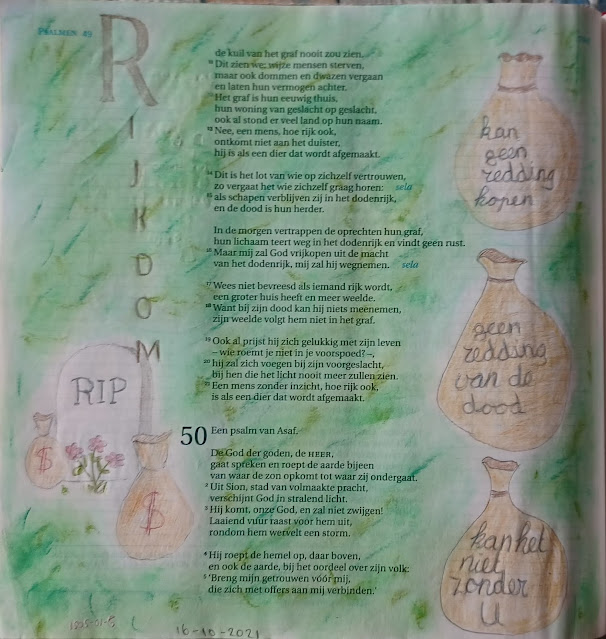 PSALMEN 49
RIJKDOM
de kuil van het graf nooit zou zien.
11 Dit zien we: wijze mensen sterven,
maar ook dommen en dwazen vergaan
en laten hun vermogen achter.
12 Het graf is hun eeuwig thuis,
hun woning van geslacht op geslacht,
ook al stond er veel land op hun naam.
13 Nee, een mens, hoe rijk ook,
ontkomt niet aan het duister,
hij is als een dier dat wordt afgemaakt.
14 Dit is het lot van wie op zichzelf vertrouwen,
zo vergaat het wie zichzelf graag horen: sela
15 als schapen verblijven zij in het dodenrijk,
en de dood is hun herder.
In de morgen vertrappen de oprechten hun graf,
hun lichaam teert weg in het dodenrijk en vindt geen rust.
16 Maar mij zal God vrijkopen uit de macht
van het dodenrijk, mij zal hij wegnemen. sela
17 Wees niet bevreesd als iemand rijk wordt,
een groter huis heeft en meer weelde.
18 Want bij zijn dood kan hij niets meenemen,
zijn weelde volgt hem niet in het graf.
19 Ook al prijst hij zich gelukkig met zijn leven
– wie roemt je niet in je voorspoed? –,
20 hij zal zich voegen bij zijn voorgeslacht,
bij hen die het licht nooit meer zullen zien.
21 Een mens zonder inzicht, hoe rijk ook,
is als een dier dat wordt afgemaakt.
50 Een psalm van Asaf.
De God der goden, de HEER,
gaat spreken en roept de aarde bijeen
van waar de zon opkomt tot waar zij ondergaat.
2 Uit Sion, stad van volmaakte pracht,
verschijnt God in stralend licht.
3 Hij komt, onze God, en zal niet zwijgen!
Laaiend vuur raast vóór hem uit,
rondom hem wervelt een storm.
4 Hij roept de hemel op, daar boven,
en ook de aarde, bij het oordeel over zijn volk:
5 'Breng mijn getrouwen vóór mij,
die zich met offers aan mij verbinden.'
RIP
$
$
kan
geen
redding
kopen
geen
redding
van de
dood
kan het
niet
zonder
U
16-10-2021